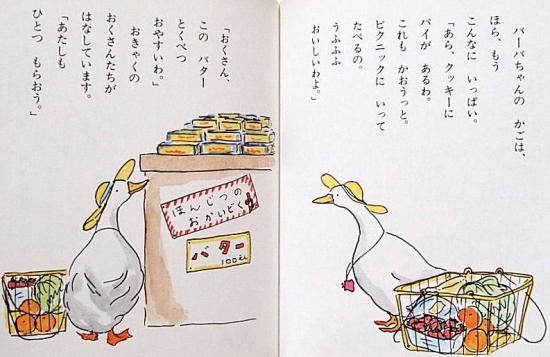 バーバちゃんの かごは、
ほら、もう
こんなに いっぱい。
「あら、クッキーに
パイが あるわ。
これも かおうっと。
ピクニックに いって
たべるの。
うふふふ
おいしいわよ。」
「おくさん、
この バター
とくべつ
おやすいわ。」
おきゃくの
おくさんたちが
はなしています。
「あたしも
ひとつ もらおう。」
ほんじつの
おかいどく
バター
100えん